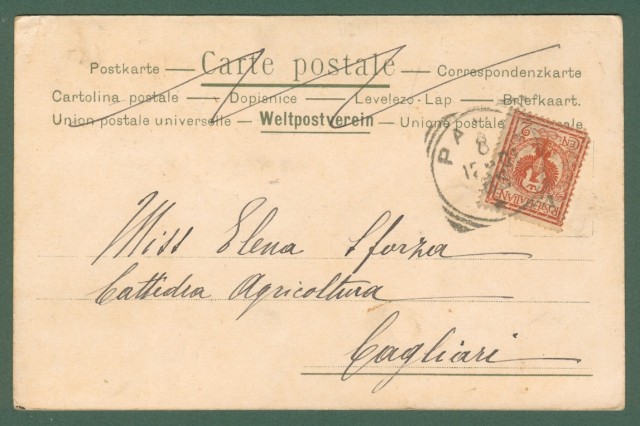 Postkarte — Carte postale — Correspondenzkarte
Cartolina postale — Dopisnice — Levelezo-Lap — Briefkaart.
Union postale universelle — Weltpostverein — Unione postale
PA
8
Miss Elena Sforza
Cattedra Agricoltura
Cagliari